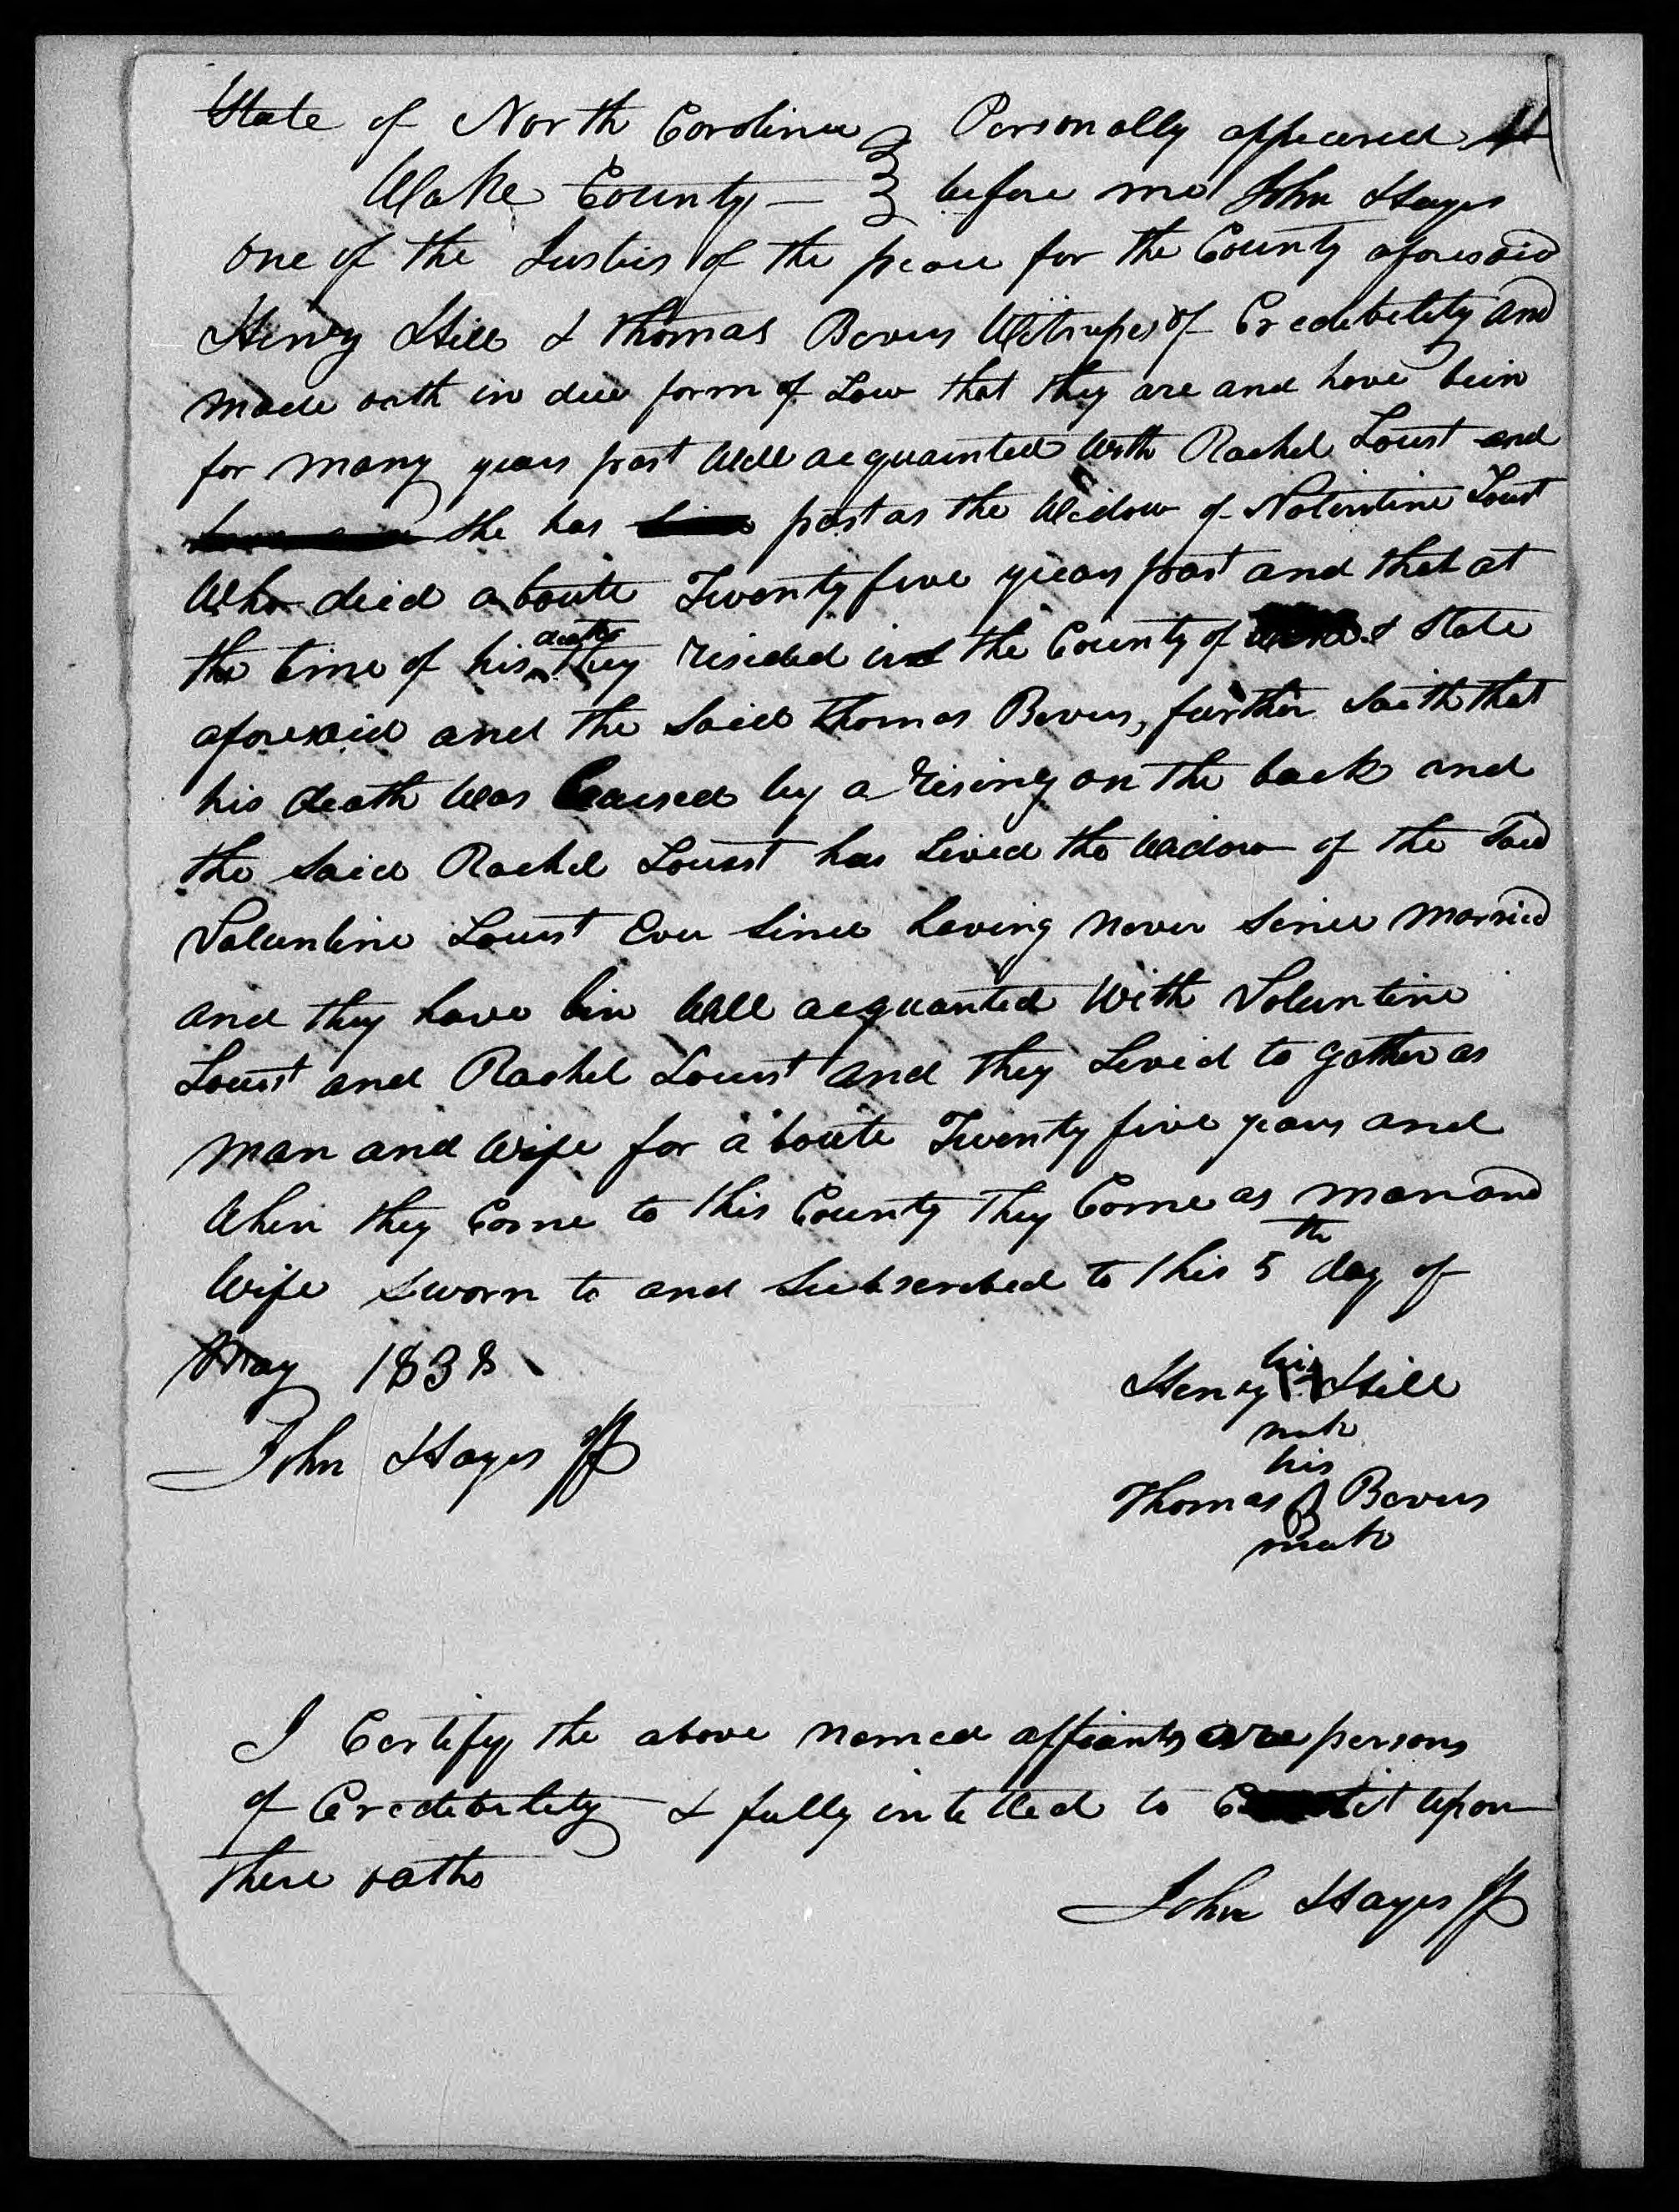 State of North Carolina } Personally appeared
Wake County — } before me John Hayes
one of the Justies of the peace for the County aforesaid
Henry Hill & Thomas Bevus Witnesses of Credebelity and
made oath in due form of Law that they are and have bein
for many years past Well acquainted With Rachel Locust and
she has past as the Widow of Valintine Locust
Who died aboute Twenty five years past and that at
the time of his death they resided in the County of & State
aforesaid and the Said Thomas Bevus, further Saith that
his death Was Caused by a rising on the back and
the Said Rachel Locust has Lived the Widow of the Said
Valuntine Locust Ever Since having never Since married
and they have bin Well acquanted With Voluntine
Locust and Rachel Locust and they Lived to gather as
man and Wife for a boute Twenty five years and
When they Come to this County they Come as man and
Wife Sworn to and Subscribed to this 5th day of
May 1838
Henry his Hill
mark
John Hayes JP
his
Thomas B Bevus
mark
I Certify the above named affiants are persons
of Credebelity & fully intitled to upon
there oaths
John Hayes JP